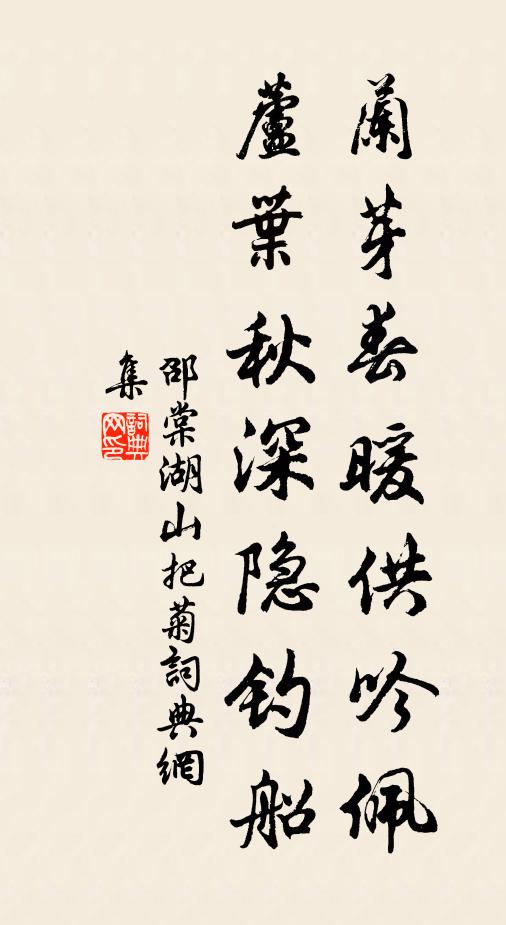 蘭芽春暖供吟佩
蘆葉秋深隐钓船
邵棠湖山把菊詞典網
集
詞典網印